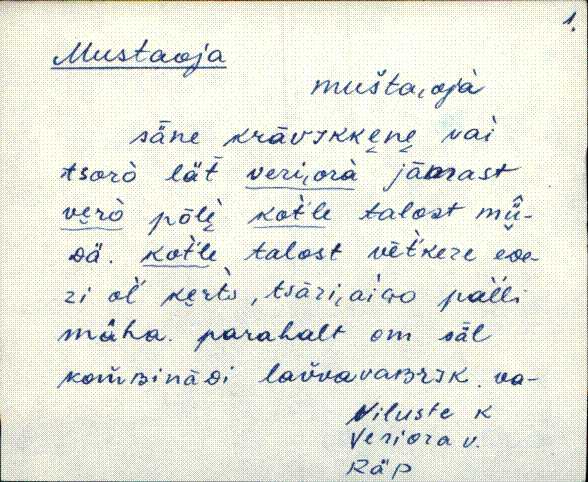 1.
Mustaoja
mušta,ojà
säne krāvɪkkene vai
tsorò lät́ veri,orà jāmast
verò pōlè kot̀le talost mǖ-
dä. kot̀le talost vētkere eoe-
ri ol' kerts, tsäri,aiɢo pälli
mäha. parahalt om säl
kom̄ʙinādi lauvavaʙrɪk. va-
Niluste k
Veriora v.
Räp